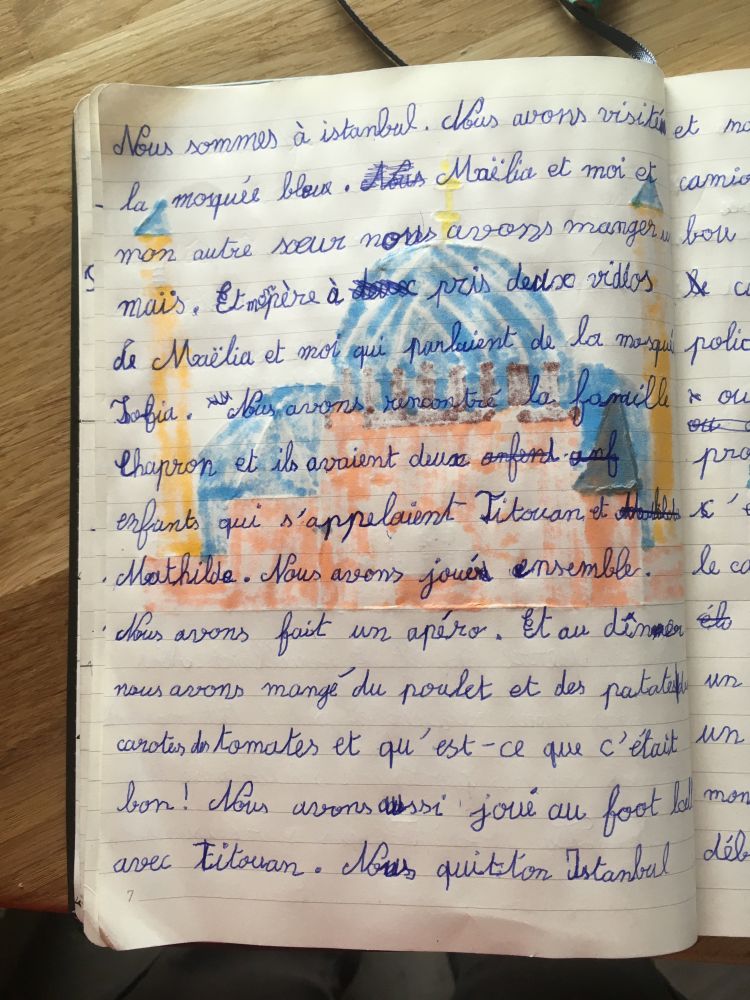 Nous sommes à istanbul. Nous avons visité
la mosquée bleux. Nous Maëlia et moi et
mon autre sœur nous avons manger un
maïs. Et mon père à deux pris deux vidéos
de Maëlia et moi qui parlaient de la mosqué
Sofia. Nous avons rencontré la famille
Chapron et ils avaient deux enfent anf
enfants qui s'appelaient Titouan et
Mathilde. Nous avons joué ensemble.
Nous avons fait un apéro. Et au dîner
nous avons mangé du poulet et des patates
carotes des tomates et qu'est-ce que c'était
bon! Nous avons aussi joué au foot ball
avec Titouan. Nous quitton Istanbul
7
et
camio
bou
polic
ou
ou
pro
le ca
éla
un
un
mon
déb